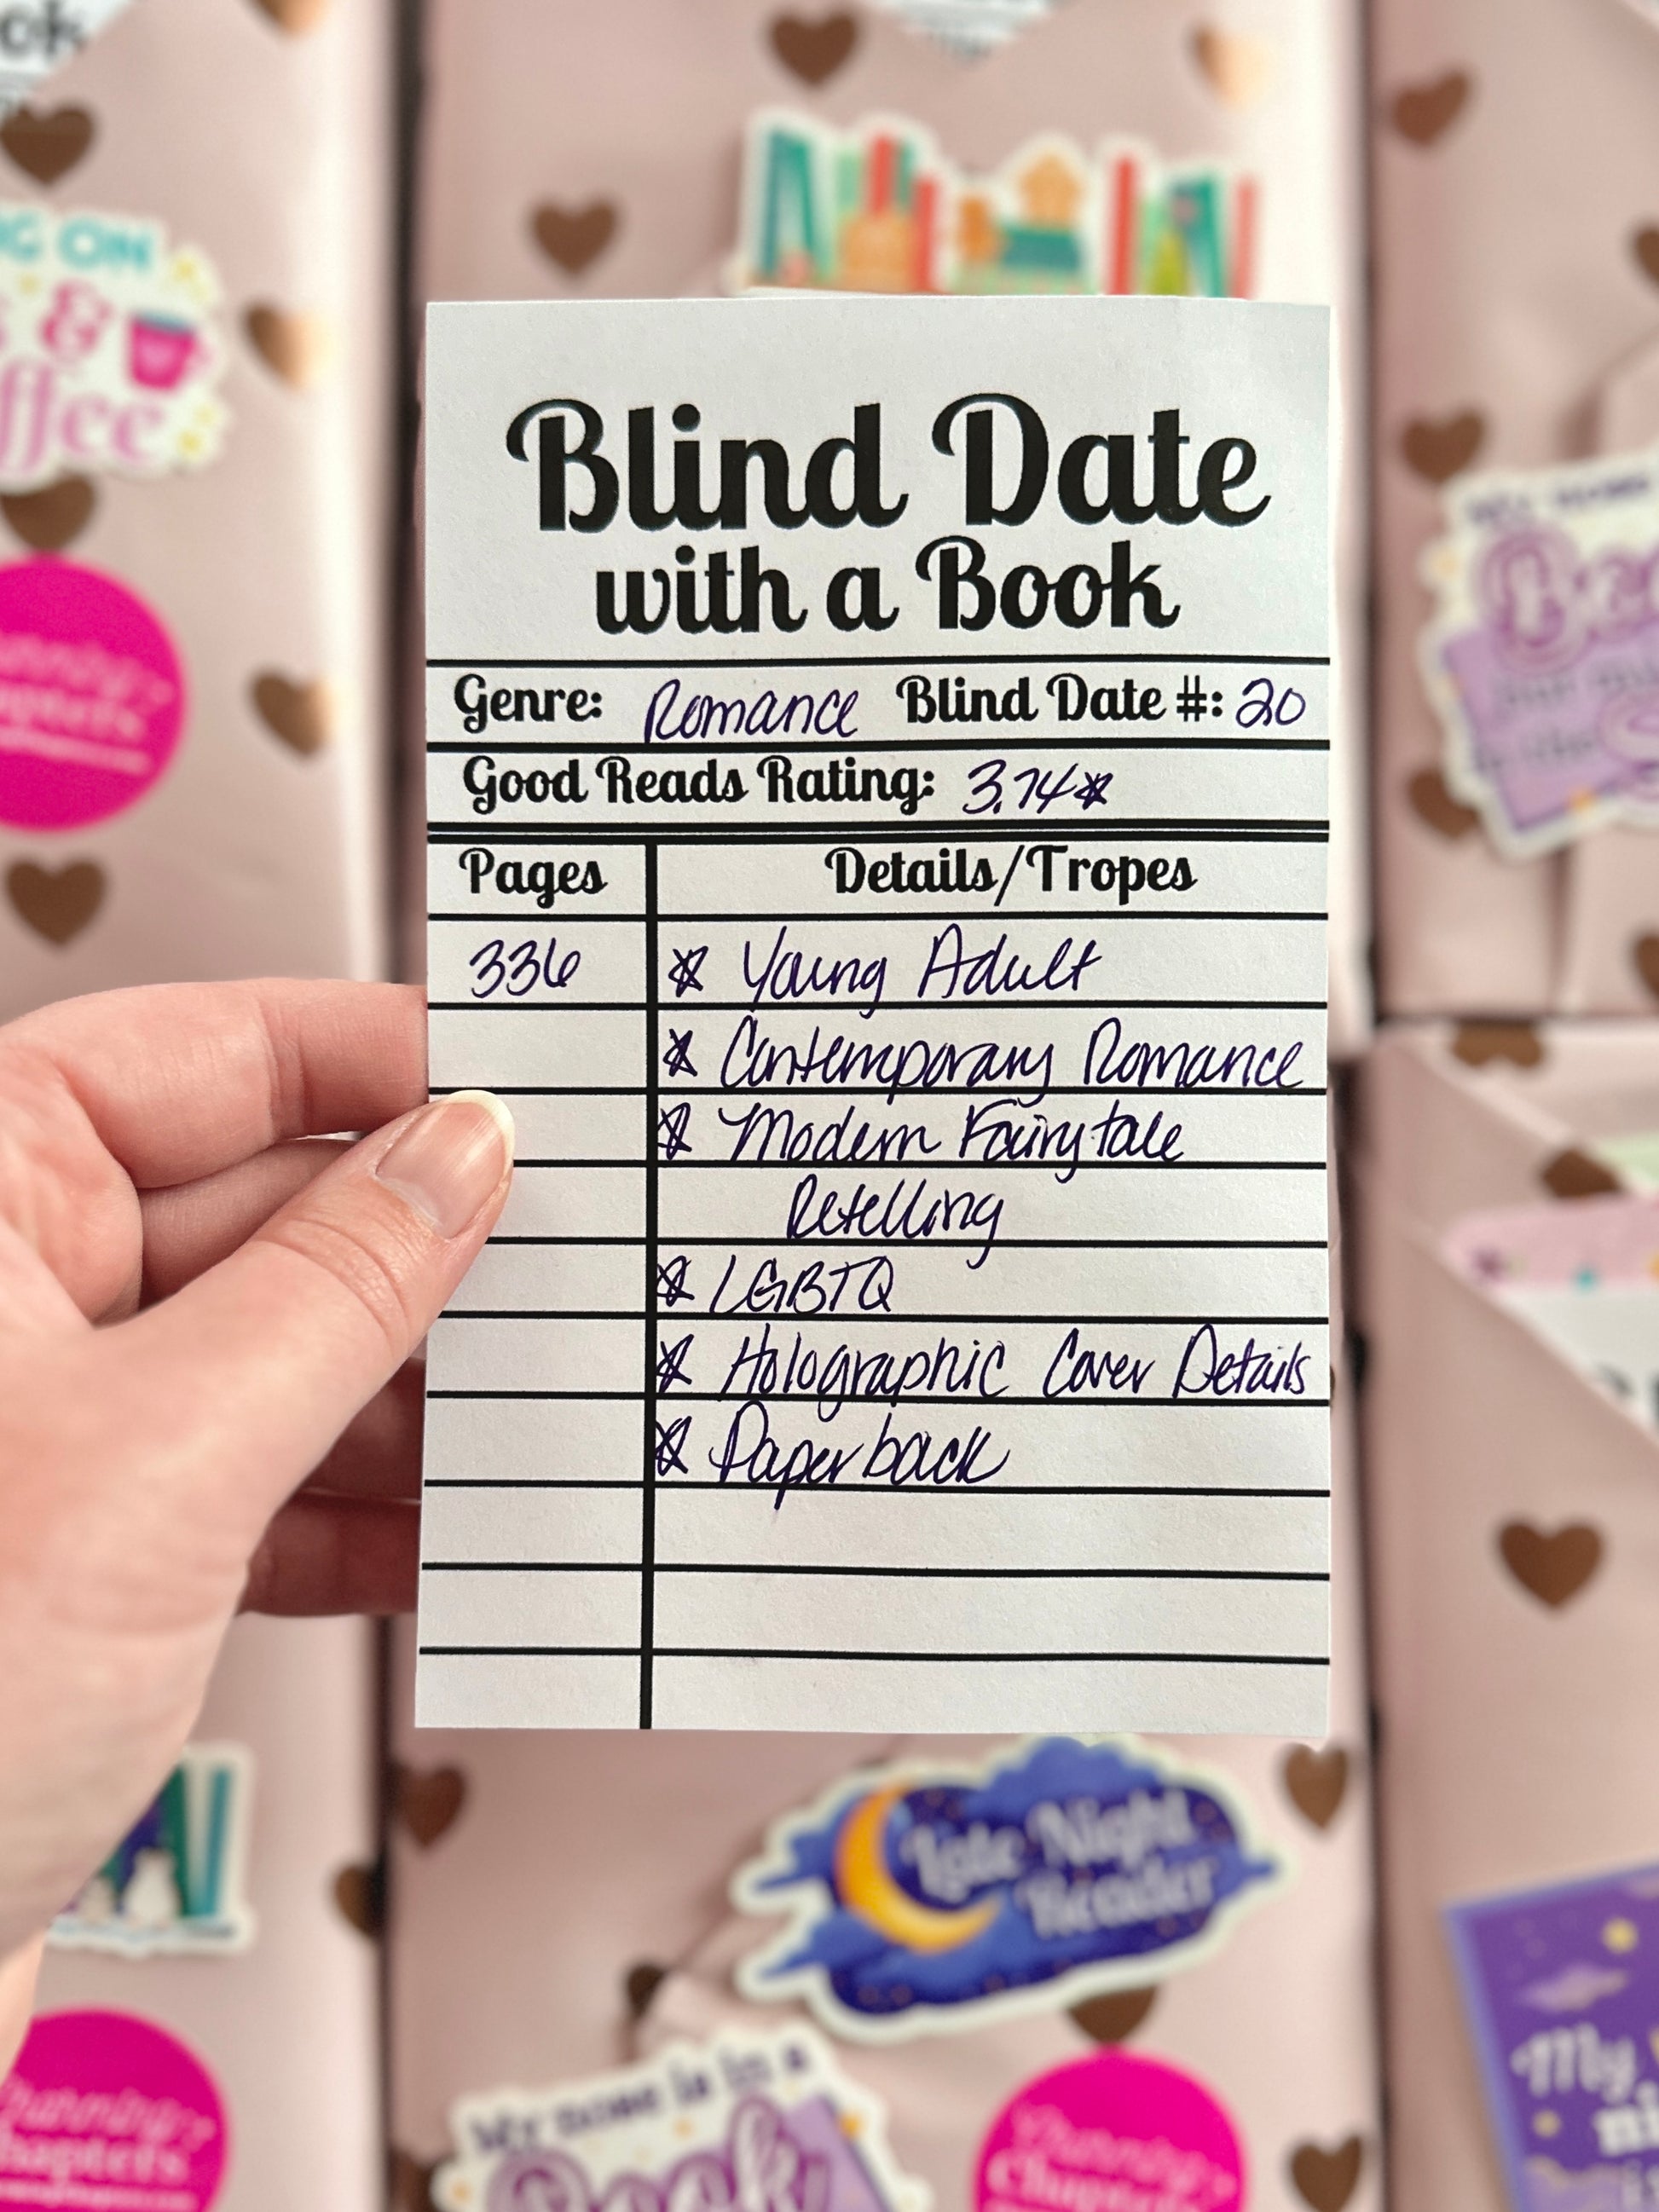 ok
G ON
&
ffee
Blind Date
with a Book
Genre: Romance Blind Date #: 20
Good Reads Rating: 3.74*
Pages Details/Tropes
336 * Young Adult
* Contemporary Romance
* Modern Fairytale
Retelling
* LGBTQ
* Holographic Cover Details
* Paperback
Late Night
Reader
My nose is in a
Book
Chapters
My
ni